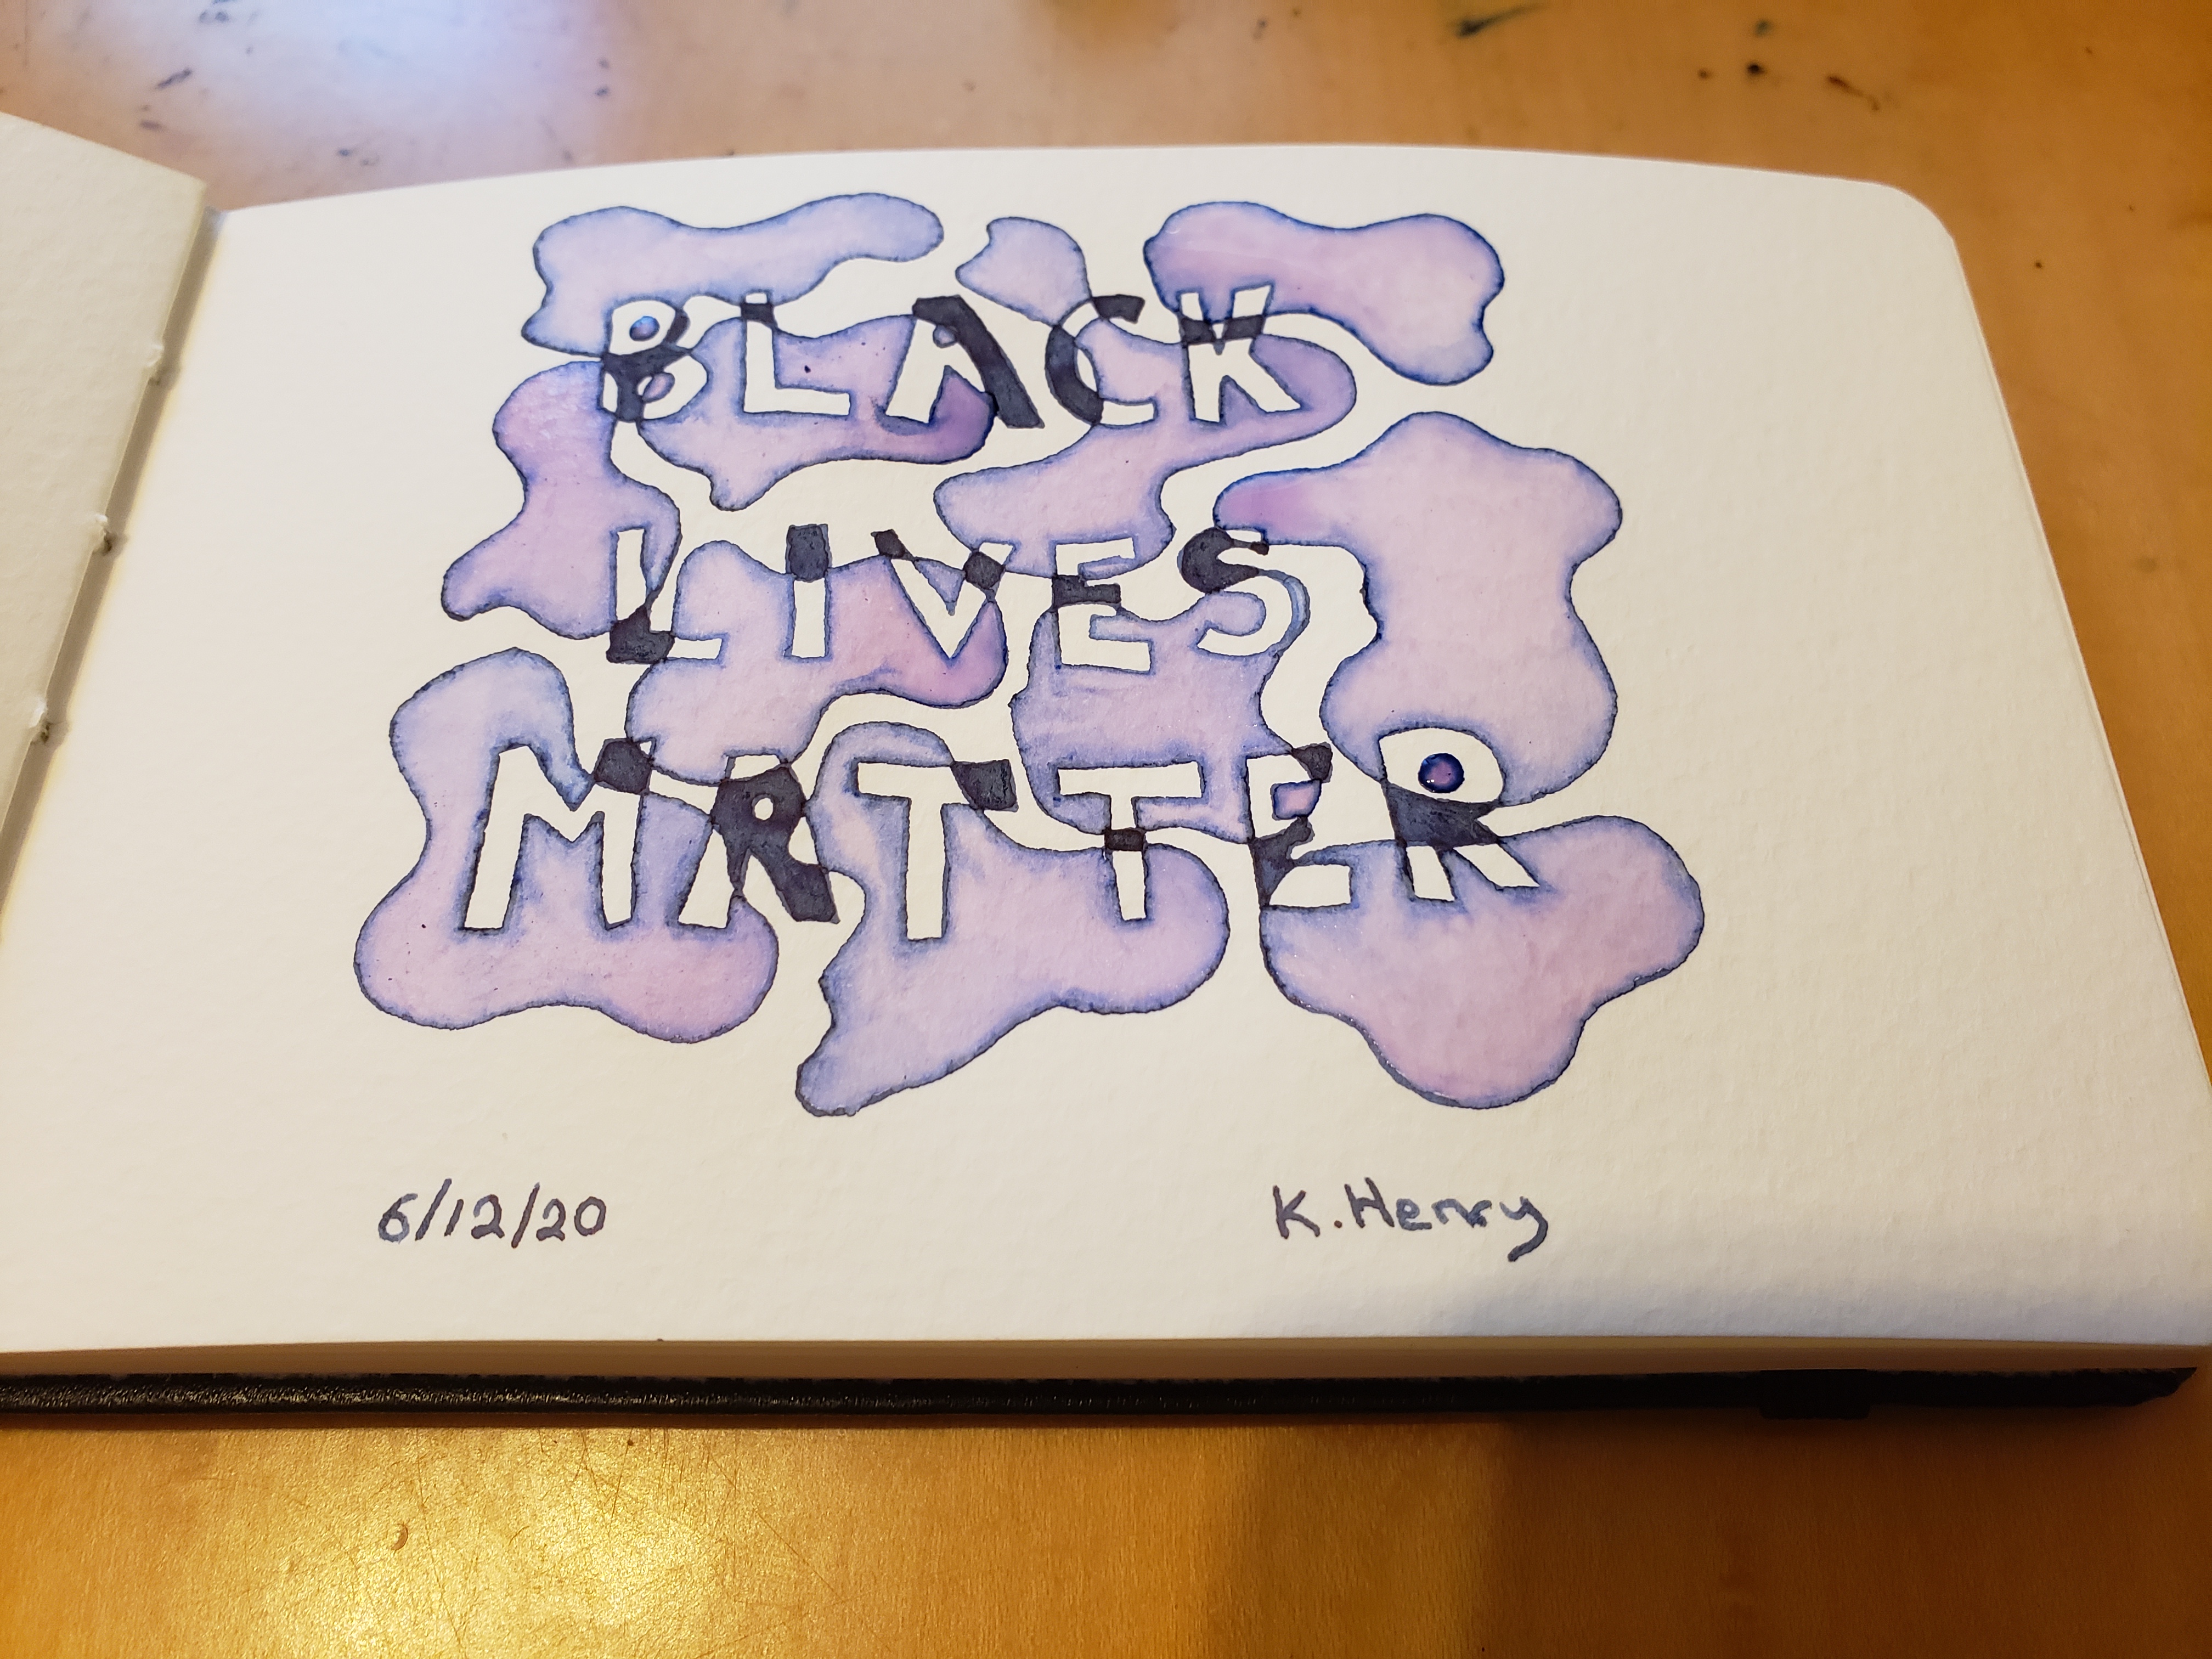 BLACK
LIVES
MATTER
6/12/20 K. Henry